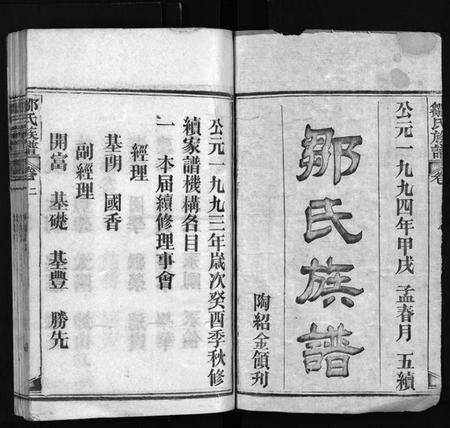 鄒氏族譜
公元一九九四年甲戌 孟春月 五續
鄒氏族譜
陶紹金領刋
公元一九九三年歲次癸酉季秋修
續家譜機構各目
一 本届續修理事會
經理
基明 國香
副經理
開富 基礎 基豐 勝先
鄒氏族譜